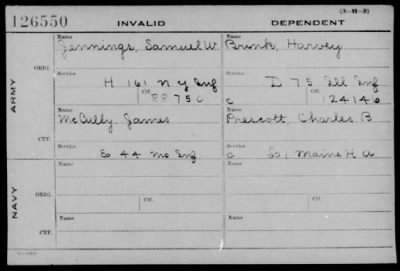 (3-H-3)
126550 INVALID DEPENDENT
ARMY
ORIG.
Name Jennings, Samuel W. Name Brink, Harvey
Service H 161 N Y Inf Service D 75 Ill Inf
Ctf. 88750 C Ctf. 124146
CTF.
Name McCully, James Name Prescott Charles B
Service E 44 Mo Inf Service C So, Maine H A
NAVY
ORIG.
Name Name
Service Ctf. Service Ctf.
CTF.
Name Name
Service Service